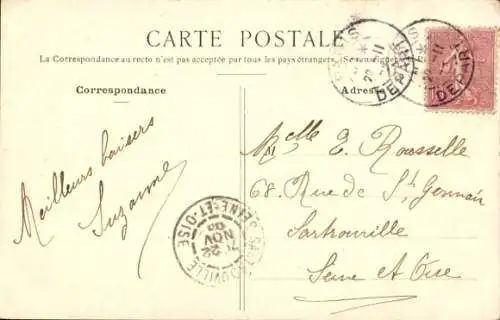 CARTE POSTALE
La Correspondance au recto n'est pas acceptée par tous les pays étrangers. (Se renseigner
Correspondance
Adresse
Meilleurs baisers
Suzanne
Mlle E. Rousselle
68 Rue de St Germain
Sartrouville
Seine et Oise
DEPART
DEPART
22 -11
SARTROUVILLE
SEINE-ET-OISE
22
NOV